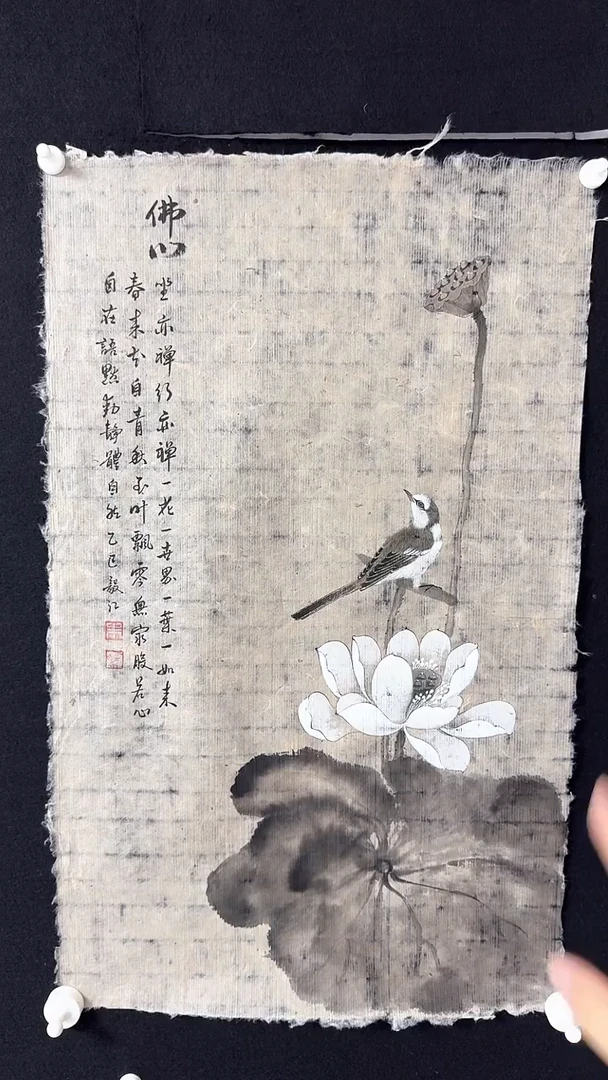 佛心
坐亦禅行亦禅一花一世界一葉一如来
春来花自青秋至叶飘零無窮般若心
自在語默動静體自然乙巳毅江